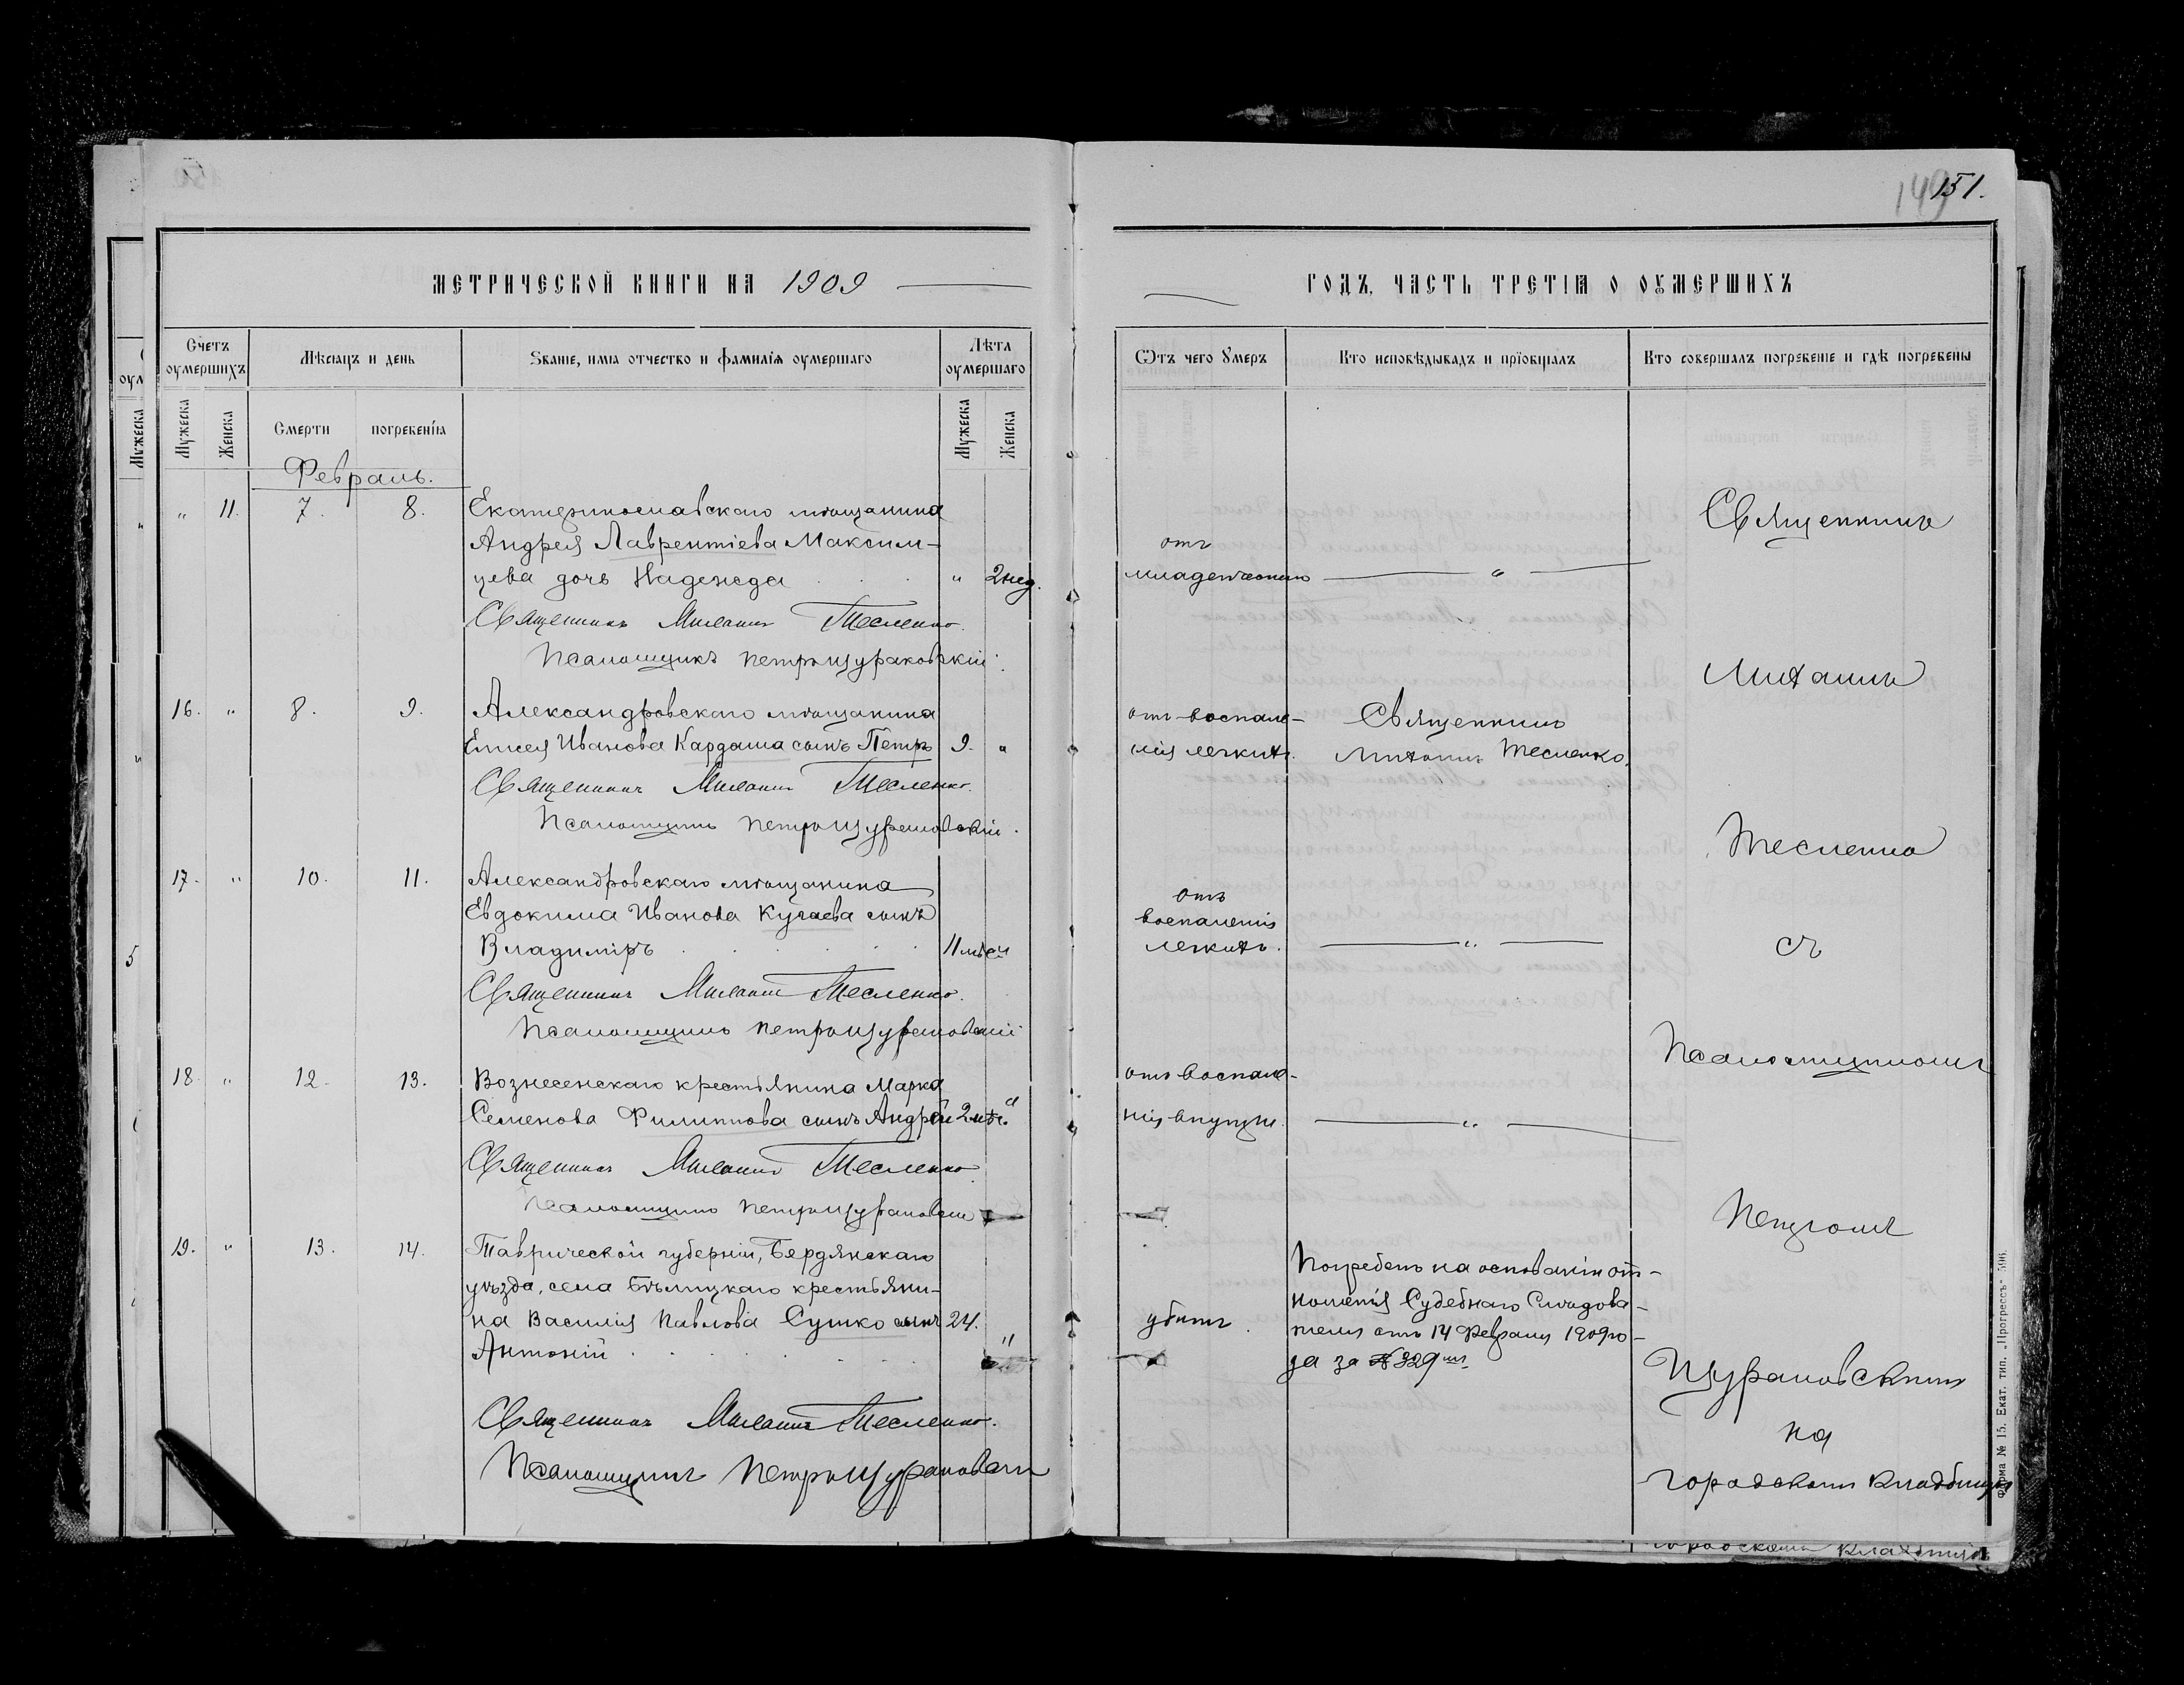 149 151.
МЕТРИЧЕСКОЙ КНИГИ НА 1909
ГОДЪ, ЧАСТЬ ТРЕТІѦ О ОУМЕРШИХЪ
Счетъ оумершихъ
Мѣсѧцъ и день
Званіе, имѧ отчество и фамиліѧ оумершаго
Лѣта оумершаго
Ѿтъ чего оумеръ
Кто исповѣдывалъ и пріобщалъ
Кто совершалъ погребеніе и гдѣ погребены
Мужеска
Женска
Смерти
погребеніѧ
Мужеска
Женска
Февраль.
" 11. 7. 8. Екатеринославскаго мѣщанина
Андрея Лаврентіева Максим-
цева дочь Надежда " 2 нед.
отъ
младенческаго
— " —
Священникъ Михаилъ Тесленко.
Псаломщикъ Петръ Цураковскій.
16. " 8. 9. Александровскаго мѣщанина
Елисея Иванова Кардаша сынъ Петръ 9. "
отъ воспале-
нія легкихъ.
Священникъ
Михаилъ Тесленко.
Священникъ Михаилъ Тесленко.
Псаломщикъ Петръ Цураковскій.
17. " 10. 11. Александровскаго мѣщанина
Евдокима Иванова Кугаева сынъ
Владиміръ 11 мѣс. "
отъ
воспаленія
легкихъ.
— " —
Священникъ Михаилъ Тесленко.
Псаломщикъ Петръ Цураковскій
18. " 12. 13. Вознесенскаго крестьянина Марка
Семенова Филиппова сынъ Андрей 2 лѣт. "
отъ воспале-
нія
— " —
Священникъ Михаилъ Тесленко
Псаломщикъ Петръ Цураковскій
19. " 13. 14. Таврической губерніи, Бердянскаго
уѣзда, села Бѣлицкаго крестьяни-
на Василія Павлова Сушко сынъ 24.
Антоній "
убитъ.
Погребенъ на основаніи от-
ношенія Судебнаго Слѣдова-
теля отъ 14 Февраля 1909 го-
да за № 329
Священникъ Михаилъ Тесленко.
Псаломщикъ Петръ Цураковскій
Священникъ
Михаилъ
Тесленко
съ
Псаломщикомъ
Петромъ
Цураковскимъ
на
городскомъ кладбищѣ
Форма № 15. Екат. тип. „Прогрессъ" 596.
5
городскомъ кладбищѣ